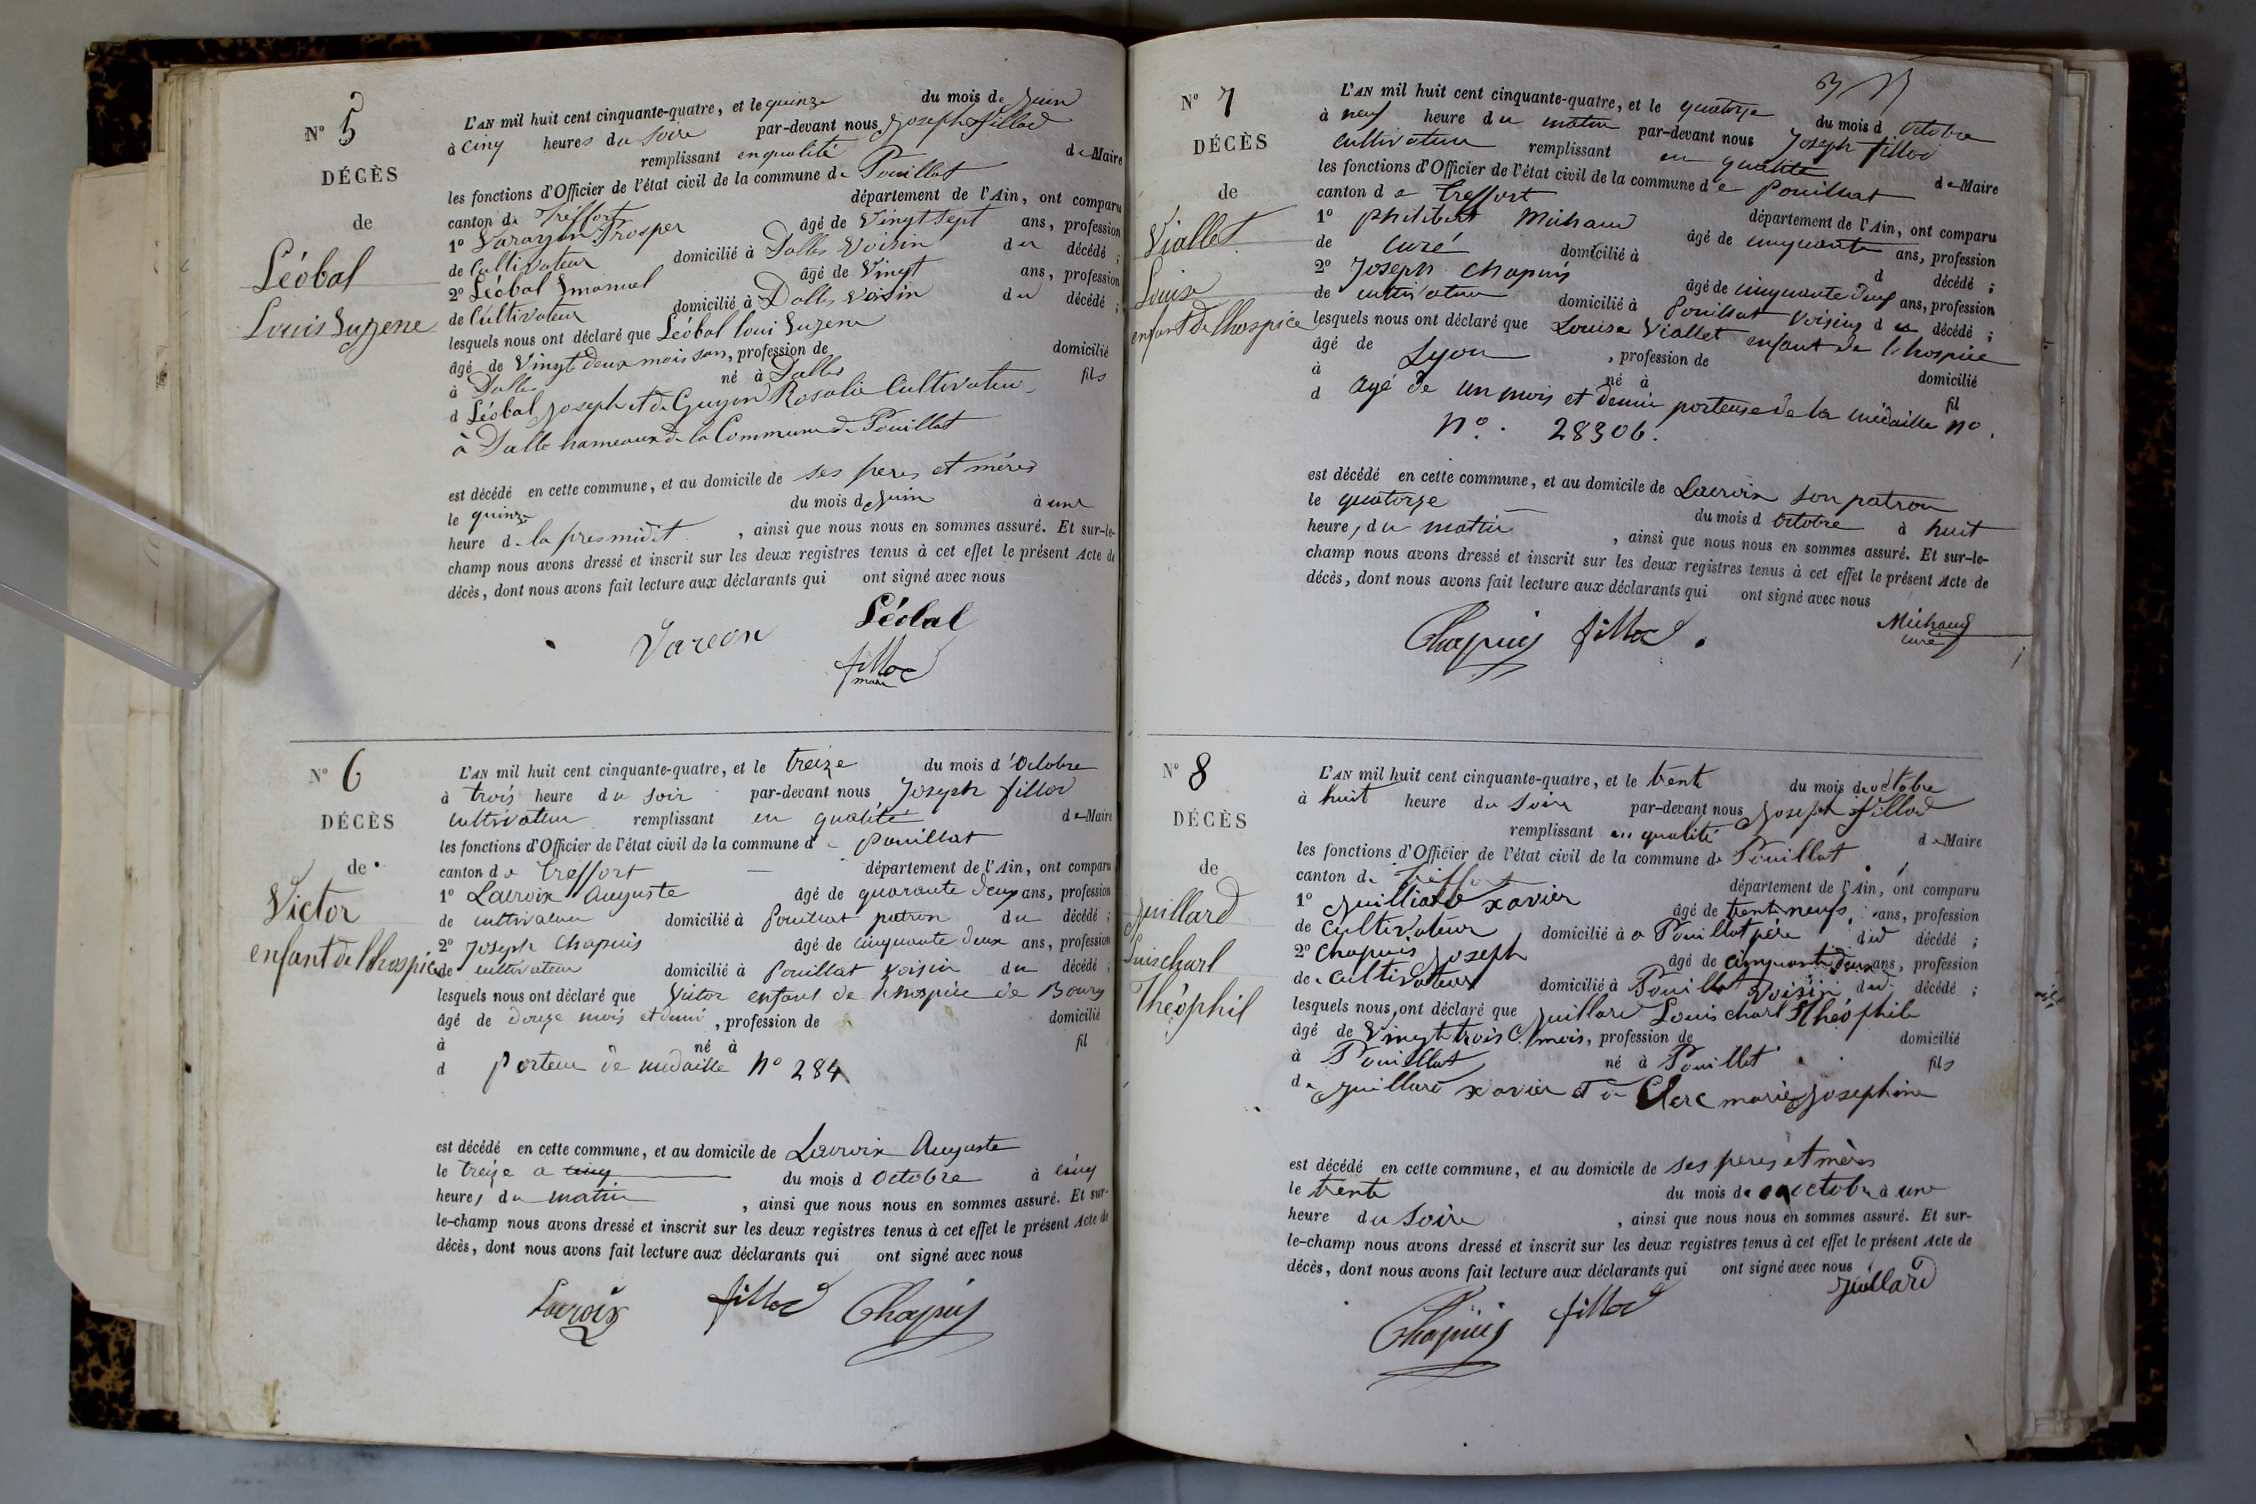 N° 5
DÉCÈS
de
Léobal
Louis Suzene
L'AN mil huit cent cinquante-quatre, et le quinze du mois de juin
à cinq heures du soire par-devant nous Joseph fillod
remplissant en qualité de Maire
les fonctions d'Officier de l'état civil de la commune de Pouillat
canton de Treffort département de l'Ain, ont comparu
1° Prosper âgé de Vingt sept ans, profession
de Cultivateur domicilié à Dalles Voisin du décédé ;
2° Léobal âgé de Vingt ans, profession
de Cultivateur domicilié à Dalles Voisin du décédé ;
lesquels nous ont déclaré que Léobal loui Suzene
âgé de Vingt deux mois , profession de domicilié
à Dalles né à Dalles fils
d Léobal joseph et de Guyon Rosalie Cultivateur
à Dalle hameaux de la Commune de Pouillat
est décédé en cette commune, et au domicile de ses peres et méres
le quinze du mois de juin à une
heure de la presmidit , ainsi que nous nous en sommes assuré. Et sur-le-
champ nous avons dressé et inscrit sur les deux registres tenus à cet effet le présent Acte de
décès, dont nous avons fait lecture aux déclarants qui ont signé avec nous
Léobal
fillod
maire
N° 6
DÉCÈS
de
Victor
enfant de l'hospice
L'AN mil huit cent cinquante-quatre, et le treize du mois d'Octobre
à trois heure du soir par-devant nous Joseph fillod
cultivateur remplissant en qualité de Maire
les fonctions d'Officier de l'état civil de la commune de pouillat
canton de treffort département de l'Ain, ont comparu
1° Lacroix Auguste âgé de quarante deux ans, profession
de cultivateur domicilié à pouillat patron du décédé ;
2° Joseph Chapuis âgé de cinquante deux ans, profession
de cultivateur domicilié à pouillat voisin du décédé ;
lesquels nous ont déclaré que Victor enfant de l'hospice de Bourg
âgé de douze mois et demi , profession de domicilié
à né à fil
d porteur de médaille n° 284
est décédé en cette commune, et au domicile de Lacroix Auguste
le treize a cinq du mois d Octobre à cinq
heures du matin , ainsi que nous nous en sommes assuré. Et sur-
le-champ nous avons dressé et inscrit sur les deux registres tenus à cet effet le présent Acte de
décès, dont nous avons fait lecture aux déclarants qui ont signé avec nous
Lacroix fillod Chapuis
N° 7
DÉCÈS
de
Viallet
Louise
enfant de l'hospice
L'AN mil huit cent cinquante-quatre, et le quatorze du mois d Octobre
à neuf heure du matin par-devant nous Joseph fillod
cultivateur remplissant en qualité de Maire
les fonctions d'Officier de l'état civil de la commune de pouillat
canton de treffort département de l'Ain, ont comparu
1° philibert Michaud âgé de cinquante ans, profession
de curé domicilié à d décédé ;
2° Joseph Chapuis âgé de cinquante deux ans, profession
de cultivateur domicilié à pouillat voisins du décédé ;
lesquels nous ont déclaré que Louise Viallet enfant de l'hospice
âgé de Lyon , profession de domicilié
à né à fil
d agé de un mois et demie porteuse de la médaille n°.
n°. 28306.
est décédé en cette commune, et au domicile de Lacroix son patron
le quatorze du mois d Octobre à huit
heure, du matin , ainsi que nous nous en sommes assuré. Et sur-le-
champ nous avons dressé et inscrit sur les deux registres tenus à cet effet le présent Acte de
décès, dont nous avons fait lecture aux déclarants qui ont signé avec nous
Chapuis fillod Michaud
curé
N° 8
DÉCÈS
de
Juillard
Luis charl
Théophil
L'AN mil huit cent cinquante-quatre, et le trente du mois de octobre
à huit heure du Soire par-devant nous Joseph fillod
remplissant en qualité de Maire
les fonctions d'Officier de l'état civil de la commune de Pouillat
canton de treffort département de l'Ain, ont comparu
1° xavier âgé de trente neufs ans, profession
de Cultivateur domicilié à a Pouillat père dud décédé ;
2° Chapuis Joseph âgé de cinquante deux ans, profession
de Cultivateur domicilié à Pouillat Voisin dud décédé ;
lesquels nous ont déclaré que juillard Louis charl Théophile
âgé de Vingt trois mois, profession de domicilié
à Pouillat né à Pouillat fils
de juillard xavier et de Clerc marie josephine
est décédé en cette commune, et au domicile de ses peres et mères
le trente du mois de octobre à une
heure du Soire , ainsi que nous nous en sommes assuré. Et sur-
le-champ nous avons dressé et inscrit sur les deux registres tenus à cet effet le présent Acte de
décès, dont nous avons fait lecture aux déclarants qui ont signé avec nous
Chapuis fillod juillard